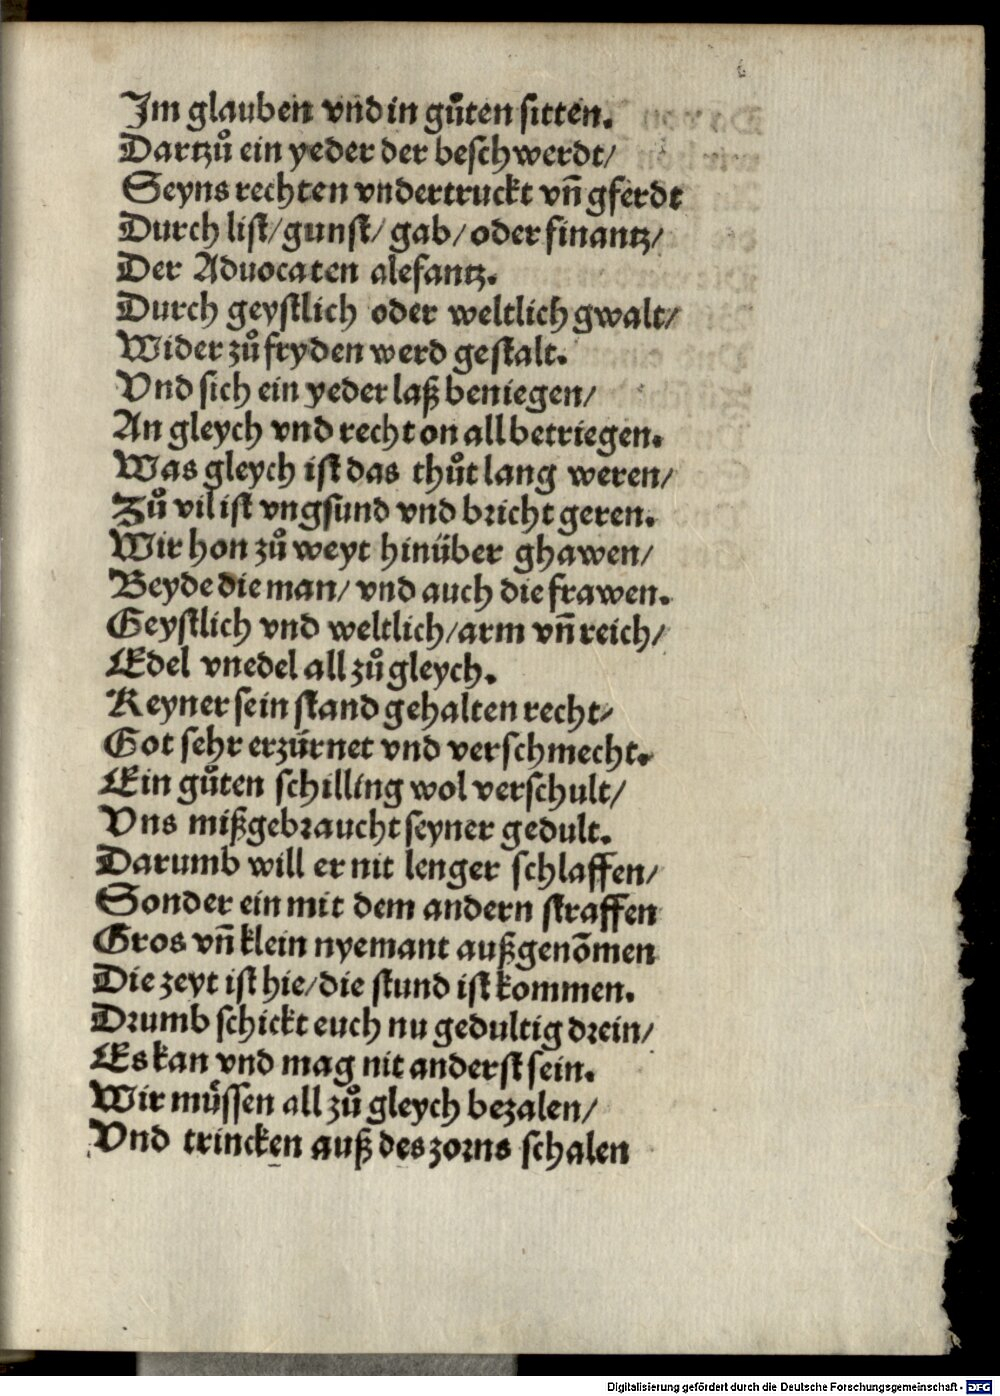 Im glauben vnd in gůten sitten.
Dartzů ein yeder der beschwerdt/
Seyns rechten vndertruckt vñ gferdt
Durch list/gunst/ gab/ oder finantz/
Der Advocaten alefantz.
Durch geystlich oder weltlich gwalt/
Wider zů fryden werd gestalt.
Vnd sich ein yeder laß beniegen/
An gleych vnd recht on all betriegen.
Was gleych ist das thůt lang weren/
Zů vil ist vngsund vnd bricht geren.
Wir hon zů weyt hinüber ghawen/
Beyde die man/ vnd auch die frawen.
Geystlich vnd weltlich/arm vñ reich/
Edel vnedel all zů gleych.
Keyner sein stand gehalten recht/
Got sehr erzürnet vnd verschmecht.
Ein gůten schilling wol verschult/
Vns mißgebraucht seyner gedult.
Darumb will er nit lenger schlaffen/
Sonder ein mit dem andern straffen
Gros vñ klein nyemant außgenõmen
Die zeyt ist hie/die stund ist kommen.
Drumb schickt euch nu gedultig drein/
Es kan vnd mag nit anderst sein.
Wir müssen all zů gleych bezalen/
Vnd trincken auß des zorns schalen
Digitalisierung gefördert durch die Deutsche Forschungsgemeinschaft - DFG